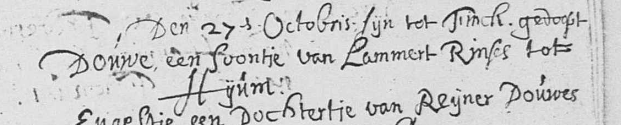 Den 27s Octobris sijn tot Finck. gedoopt
Douwe, een soontie van Lammert Rinses tot
Hijum.
Engeltie een Dochtertie van Reijner Douwes